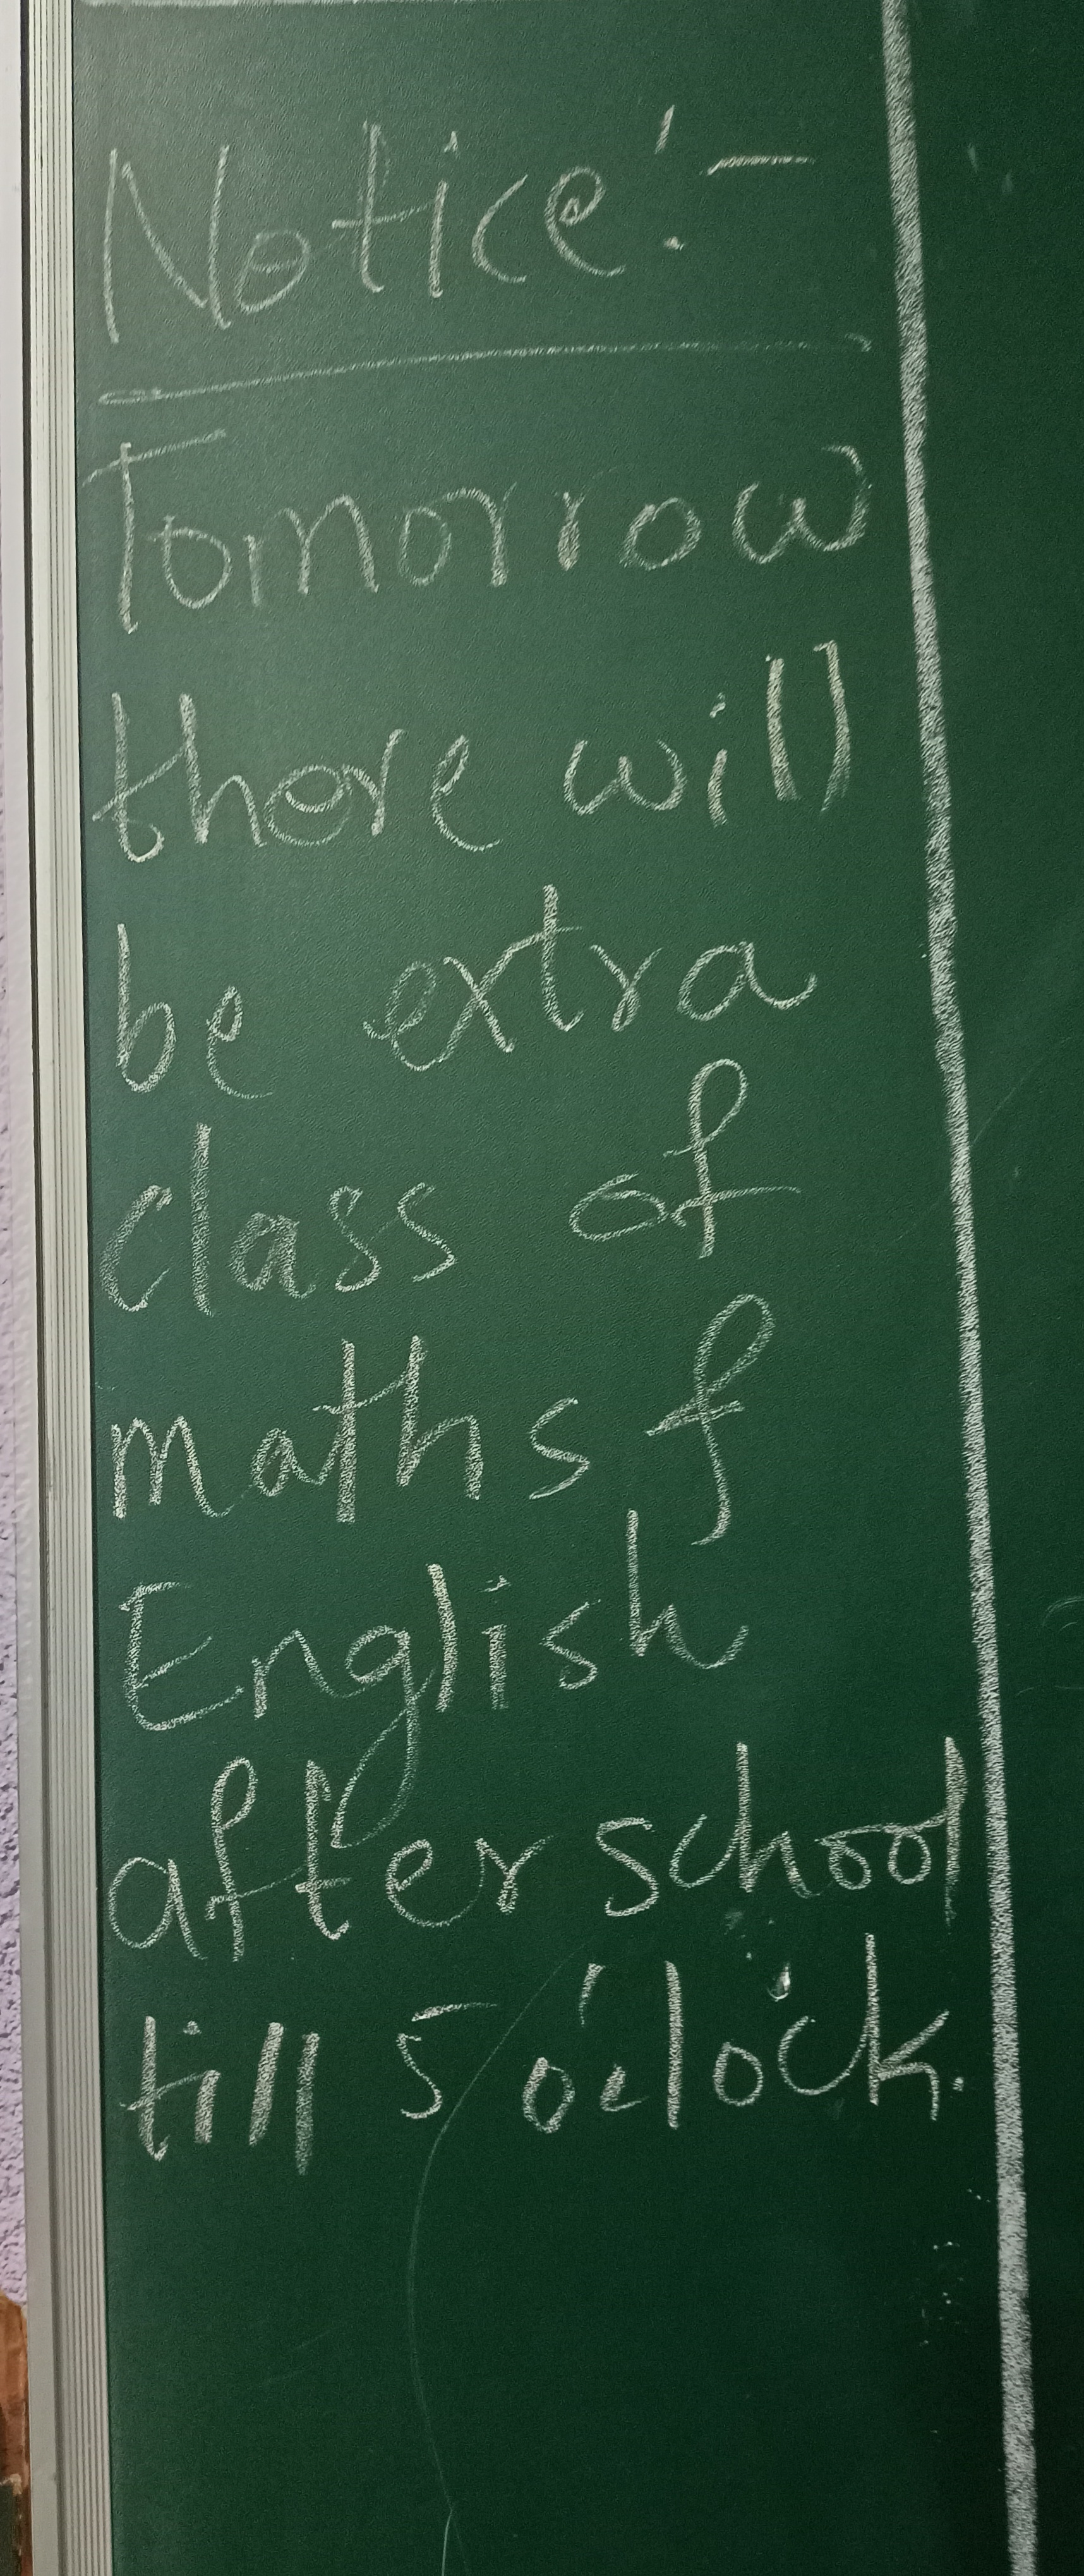 Notice:-
Tomorrow
there will
be extra
class of
maths &
English
after school
till 5 o'clock.